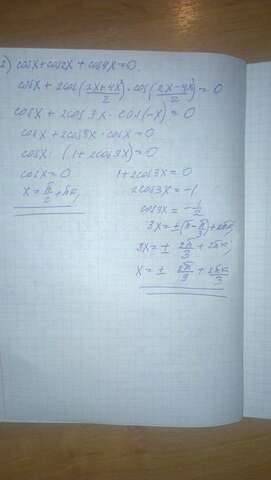 2) cosx+cos2x+cos4x=0
cosx+2cos(2x+4x/2)·cos(2x-4x/2)=0
cosx+2cos3x·cos(-x)=0
cosx+2cos3x·cosx=0
cosx·(1+2cos3x)=0
cosx=0 1+2cos3x=0
x=π/2+πn, 2cos3x=-1
cos3x=-1/2
3x=±(π-π/3)+2πк,
3x=± 2π/3 + 2πк,
x=± 2π/9 + 2πк/3